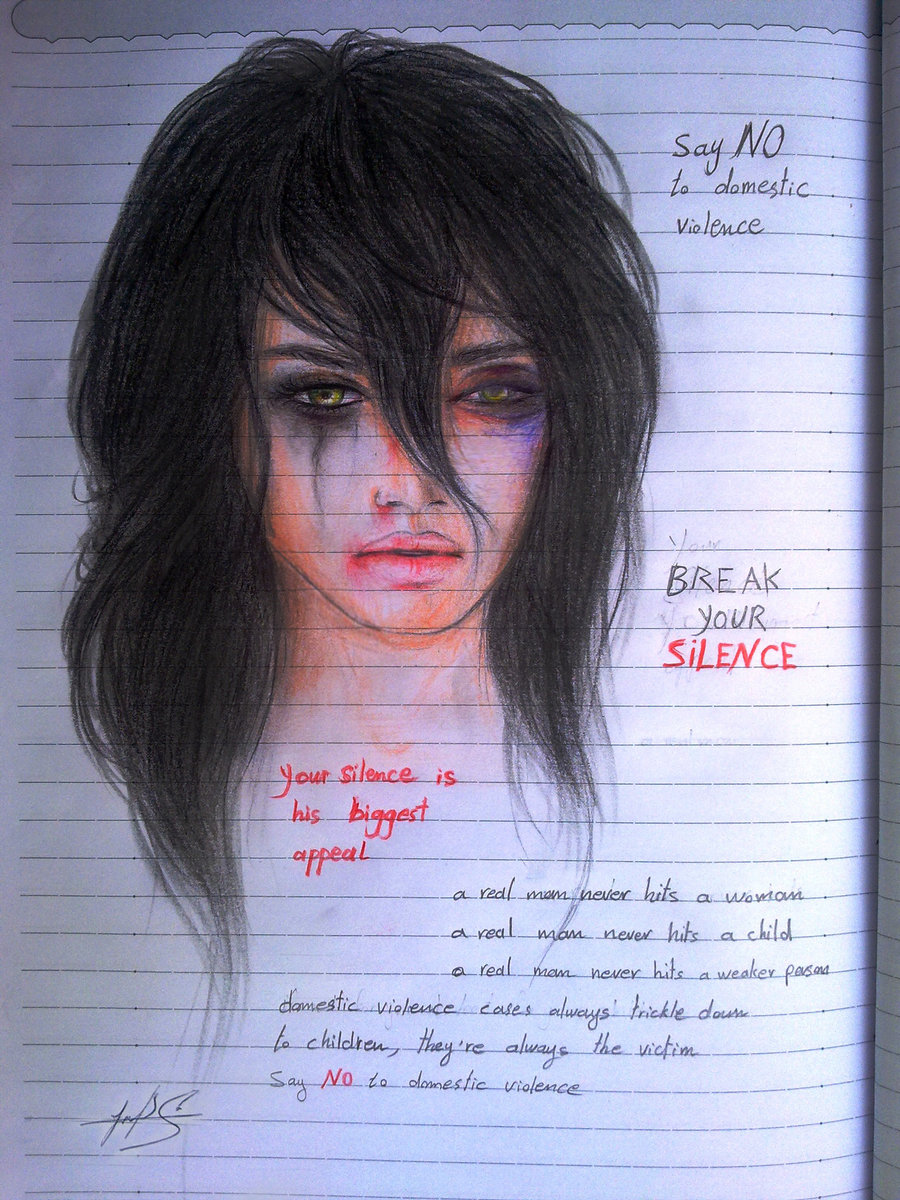 Say NO
to domestic
violence
Your
BREAK
YOUR
SiLENCE
your silence is
his biggest
appeal
a real man never hits a woman
a real man never hits a child
a real man never hits a weaker person
domestic violence cases always trickle down
to children, they're always the victim
Say NO to domestic violence